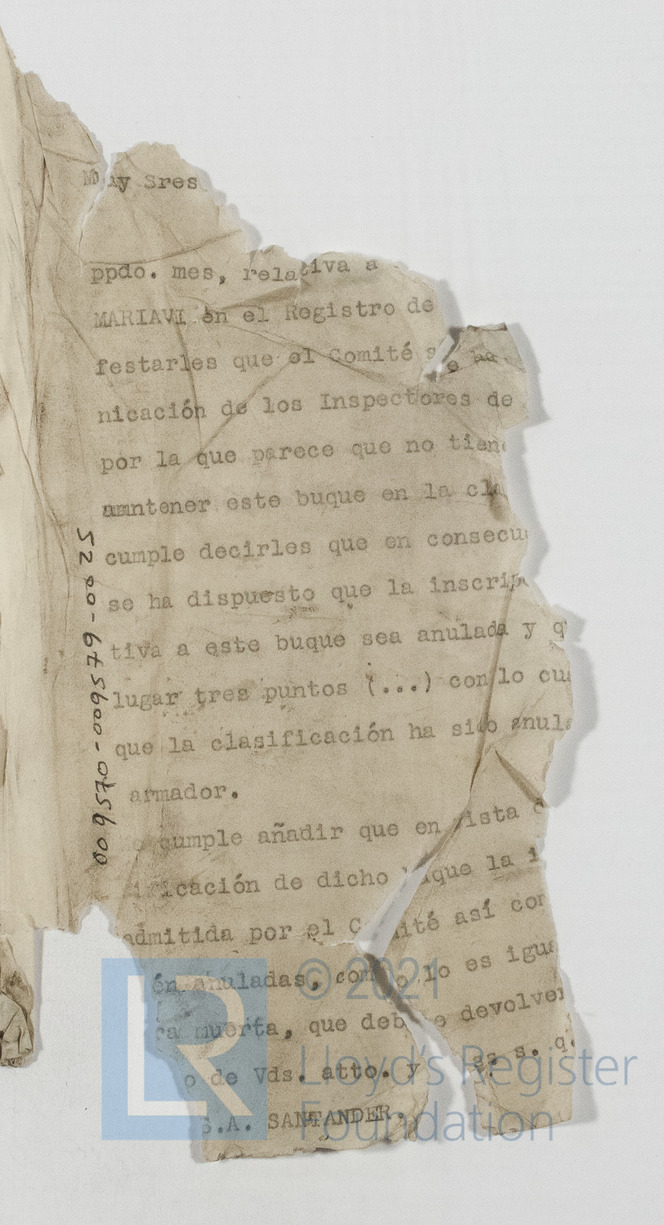 Muy Sres
ppdo. mes, relativa a
MARIAVI en el Registro de
festarles que el Comité se ha
nicación de los Inspectores de
por la que parece que no tien
amntener este buque en la cla
cumple decirles que en consecu
se ha dispuesto que la inscrip
tiva a este buque sea anulada y q
lugar tres puntos (...) con lo cua
que la clasificación ha sido anula
armador.
cumple añadir que en vista
ificación de dicho buque la i
admitida por el Comité así com
én anuladas, como lo es igua
ra muerta, que debe devolver
o de Vds. atto. y ss. s. q.
S.A. SANTANDER.
009570-009579-0025
© 2021
LR
Lloyd's Register
Foundation